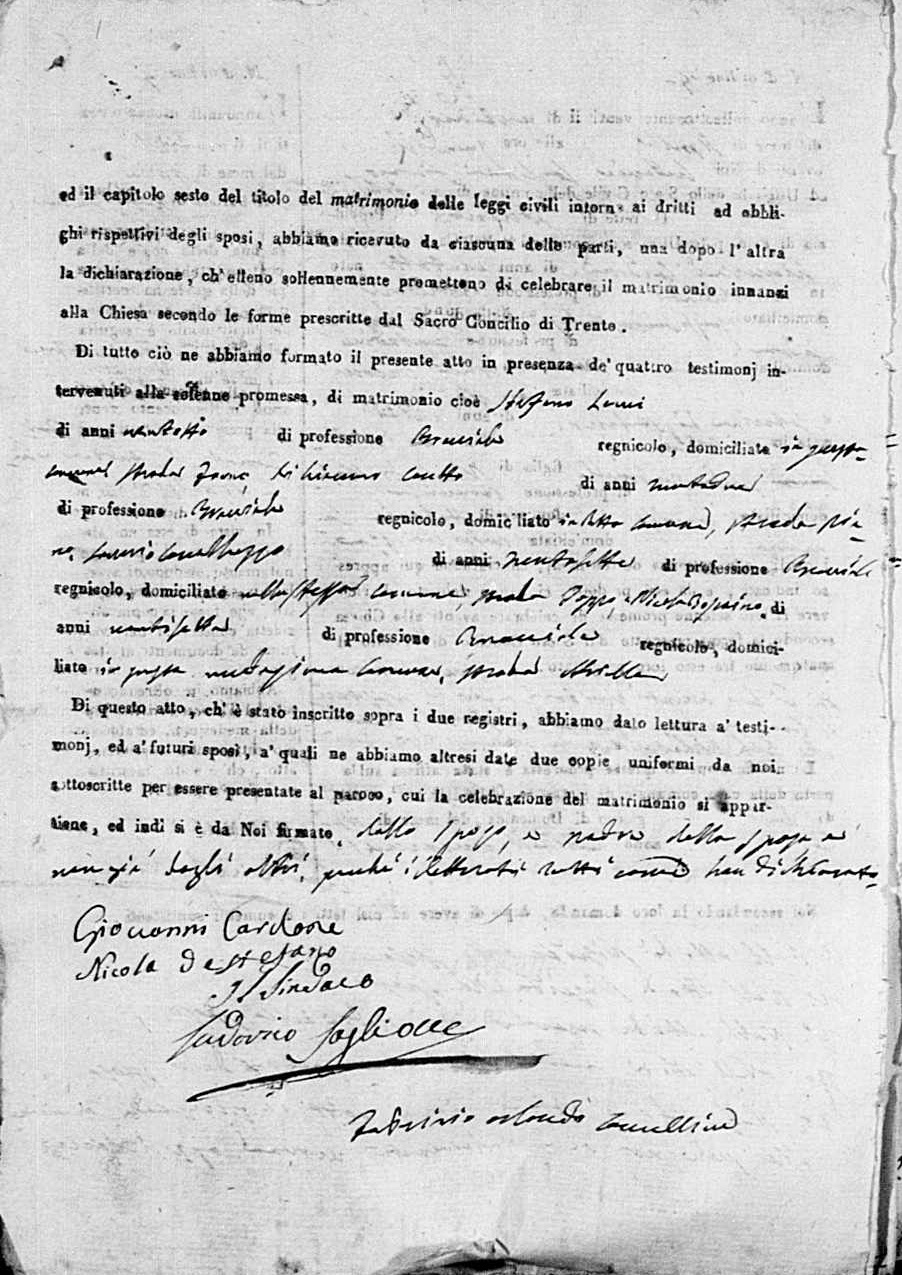 ed il capitolo sesto del titolo del matrimonio delle leggi civili intorn. ai dritti ed obbli-
ghi rispettivi degli sposi, abbiamo ricevuto da ciascuna delle parti, una dopo l'altra
la dichiarazione, ch'elleno sollennemente promettono di celebrare il matrimonio innanzi
alla Chiesa secondo le forme prescritte dal Sacro Concilio di Trento.
Di tutto ciò ne abbiamo formato il presente atto in presenza de' quattro testimonj in-
tervenuti alla solenne promessa, di matrimonio cioè Stefano
di anni di professione Bracciale regnicolo, domiciliato in questa
comune strada di anni
di professione Bracciale regnicolo, domic liato in detto comune, strada
di anni trentasette di professione Bracciale
regnicolo, domiciliato nella stessa comune, strada di
anni ventisette di professione Bracciale regnicolo, domici-
liato in questa medesima comune, strada
Di questo atto, ch' è stato inscritto sopra i due registri, abbiamo dato lettura a' testi-
monj, ed a' futuri sposi, a' quali ne abbiamo altresì date due copie uniformi da noi
sottoscritte per essere presentate al paroco, cui la celebrazione del matrimonio si appar-
tiene, ed indi si è da Noi firmato, dello sposo, e padre della sposa e
non già dagli altri, perché illetterati tutti come han dichiarato
Giovanni Cardone
Nicola deStefano
Il Sindaco
Ludovico